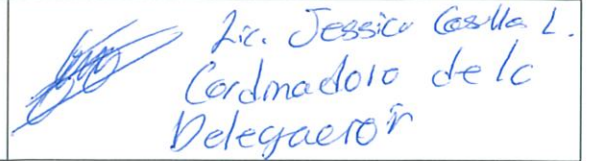 Lic. Jessica Casilla L.
Cordinadora de la
Delegación